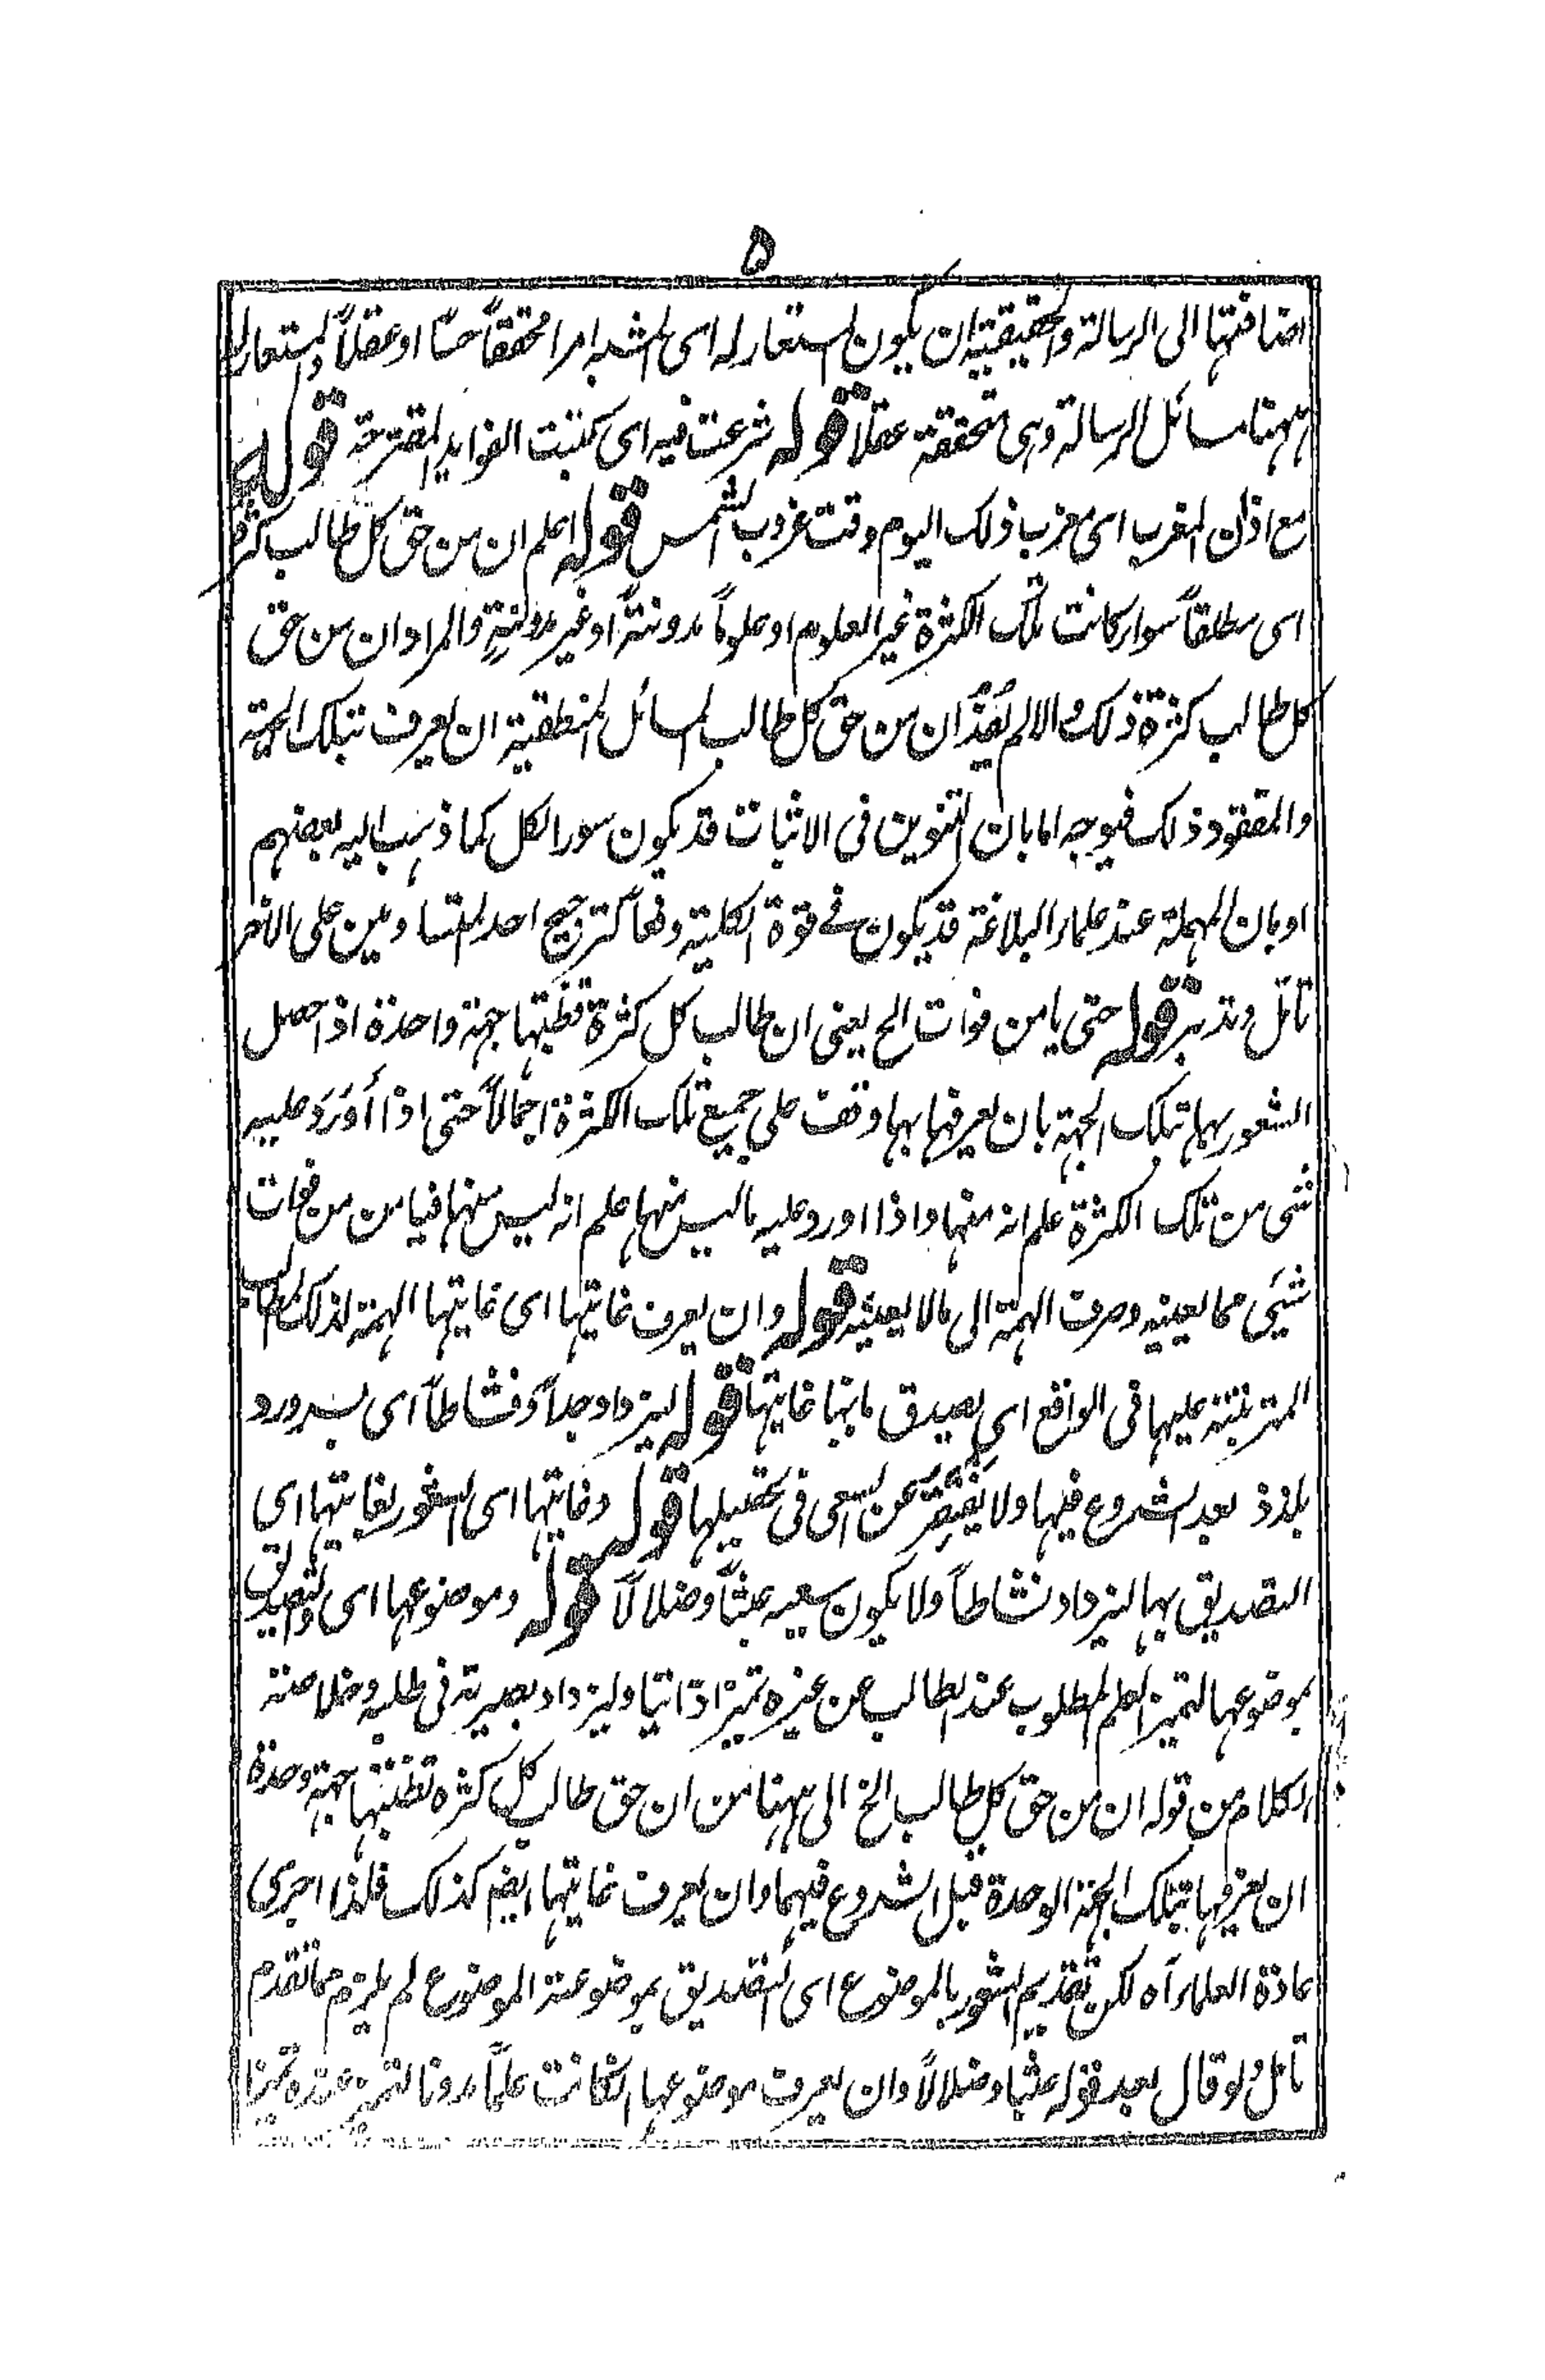 ۵
اضافتها الى الرسالة والحقيقية ان يكون المستعار له اى المشبه امرا محققاً حساً او عقلاً والمستعار له
ههنا مسائل الرسالة وهى متحققة عقلاً قوله شرعت فيه اى كتبت الفوايد المقترحة قوله
مع اذان المغرب اى مغرب ذلك اليوم وقت غروب الشمس قوله اعلم ان من حق كل طالب كثرة
اى مطلقاً سواء كانت تلك الكثرة غير العلوم او علوماً مدونةً او غير مدونةٍ والمراد ان من حق
كل طالب كثرة ذلك والا لم يُفِدْ ان من حق كل طالب المسائل المنطقية ان يعرف بتلك الجهة
والمقصود ذلك فيوجه اما بان التنوين فى الاثبات قد يكون سور الكل كما ذهب اليه بعضهم
او بان المهملة عند علماء البلاغة قد يكون فے قوة الكلية دفعاً لترجيح احد المتساويين على الآخر
تامل وتدبر قوله حتى يامن فوات الخ يعنى ان طالب كل كثرة تضبطها جهة واحدة اذا حصل
الشعور بها بتلك الجهة بان يعرفها بها وقف على جميع تلك الكثرة اجمالاً حتى اذا أُورَدَ عليه
شى من تلك الكثرة علم انه منها واذا اورد عليه ما ليس منها علم انه ليس منها فيامن من فوات
شيئى مما يعينه وصرف الهمة الى مالا يعينه قوله وان يعرف غايتها اى غايتها المهمة لذلك الطالب
المترتبة عليها فى الواقع اى يصدق بانها غايتها قوله ليزداد جداً ونشاطاً اى بسرور و
بلذذ بعد الشروع فيها ولا يَفْتُرَ عن السعى فى تحصيلها قوله وغايتها اى الشعور بغايتها اى
التصديق بها ليزداد نشاطاً ولا يكون سعيه عبثاً وضلالاً قوله وموضوعها اى والتصديق
بموضوعها ليتميز العلم المطلوب عند الطالب عن غيره تميزا ذاتيا وليزداد بصيرته فى طلبه وخلاصة
الكلام من قوله ان من حق كل طالب الخ الى ههنا من ان حق طالب كل كثره تضبطها جهة وحدة
ان يعرفها بتلك الجهة الوحدة قبل الشروع فيها وان يعرف غايتها ايضم كذلك فلذا اجرى
عادة العلماء آه لكن تقديم الشعور بالموضوع اى التصديق بموضوعية الموضوع لم يلزم مما تقدم
تامل ولو قال بعد قوله عبثا وضلالاً وان يعرف موضوعها ان كانت علماً مدونا لتميز عنده تميزا